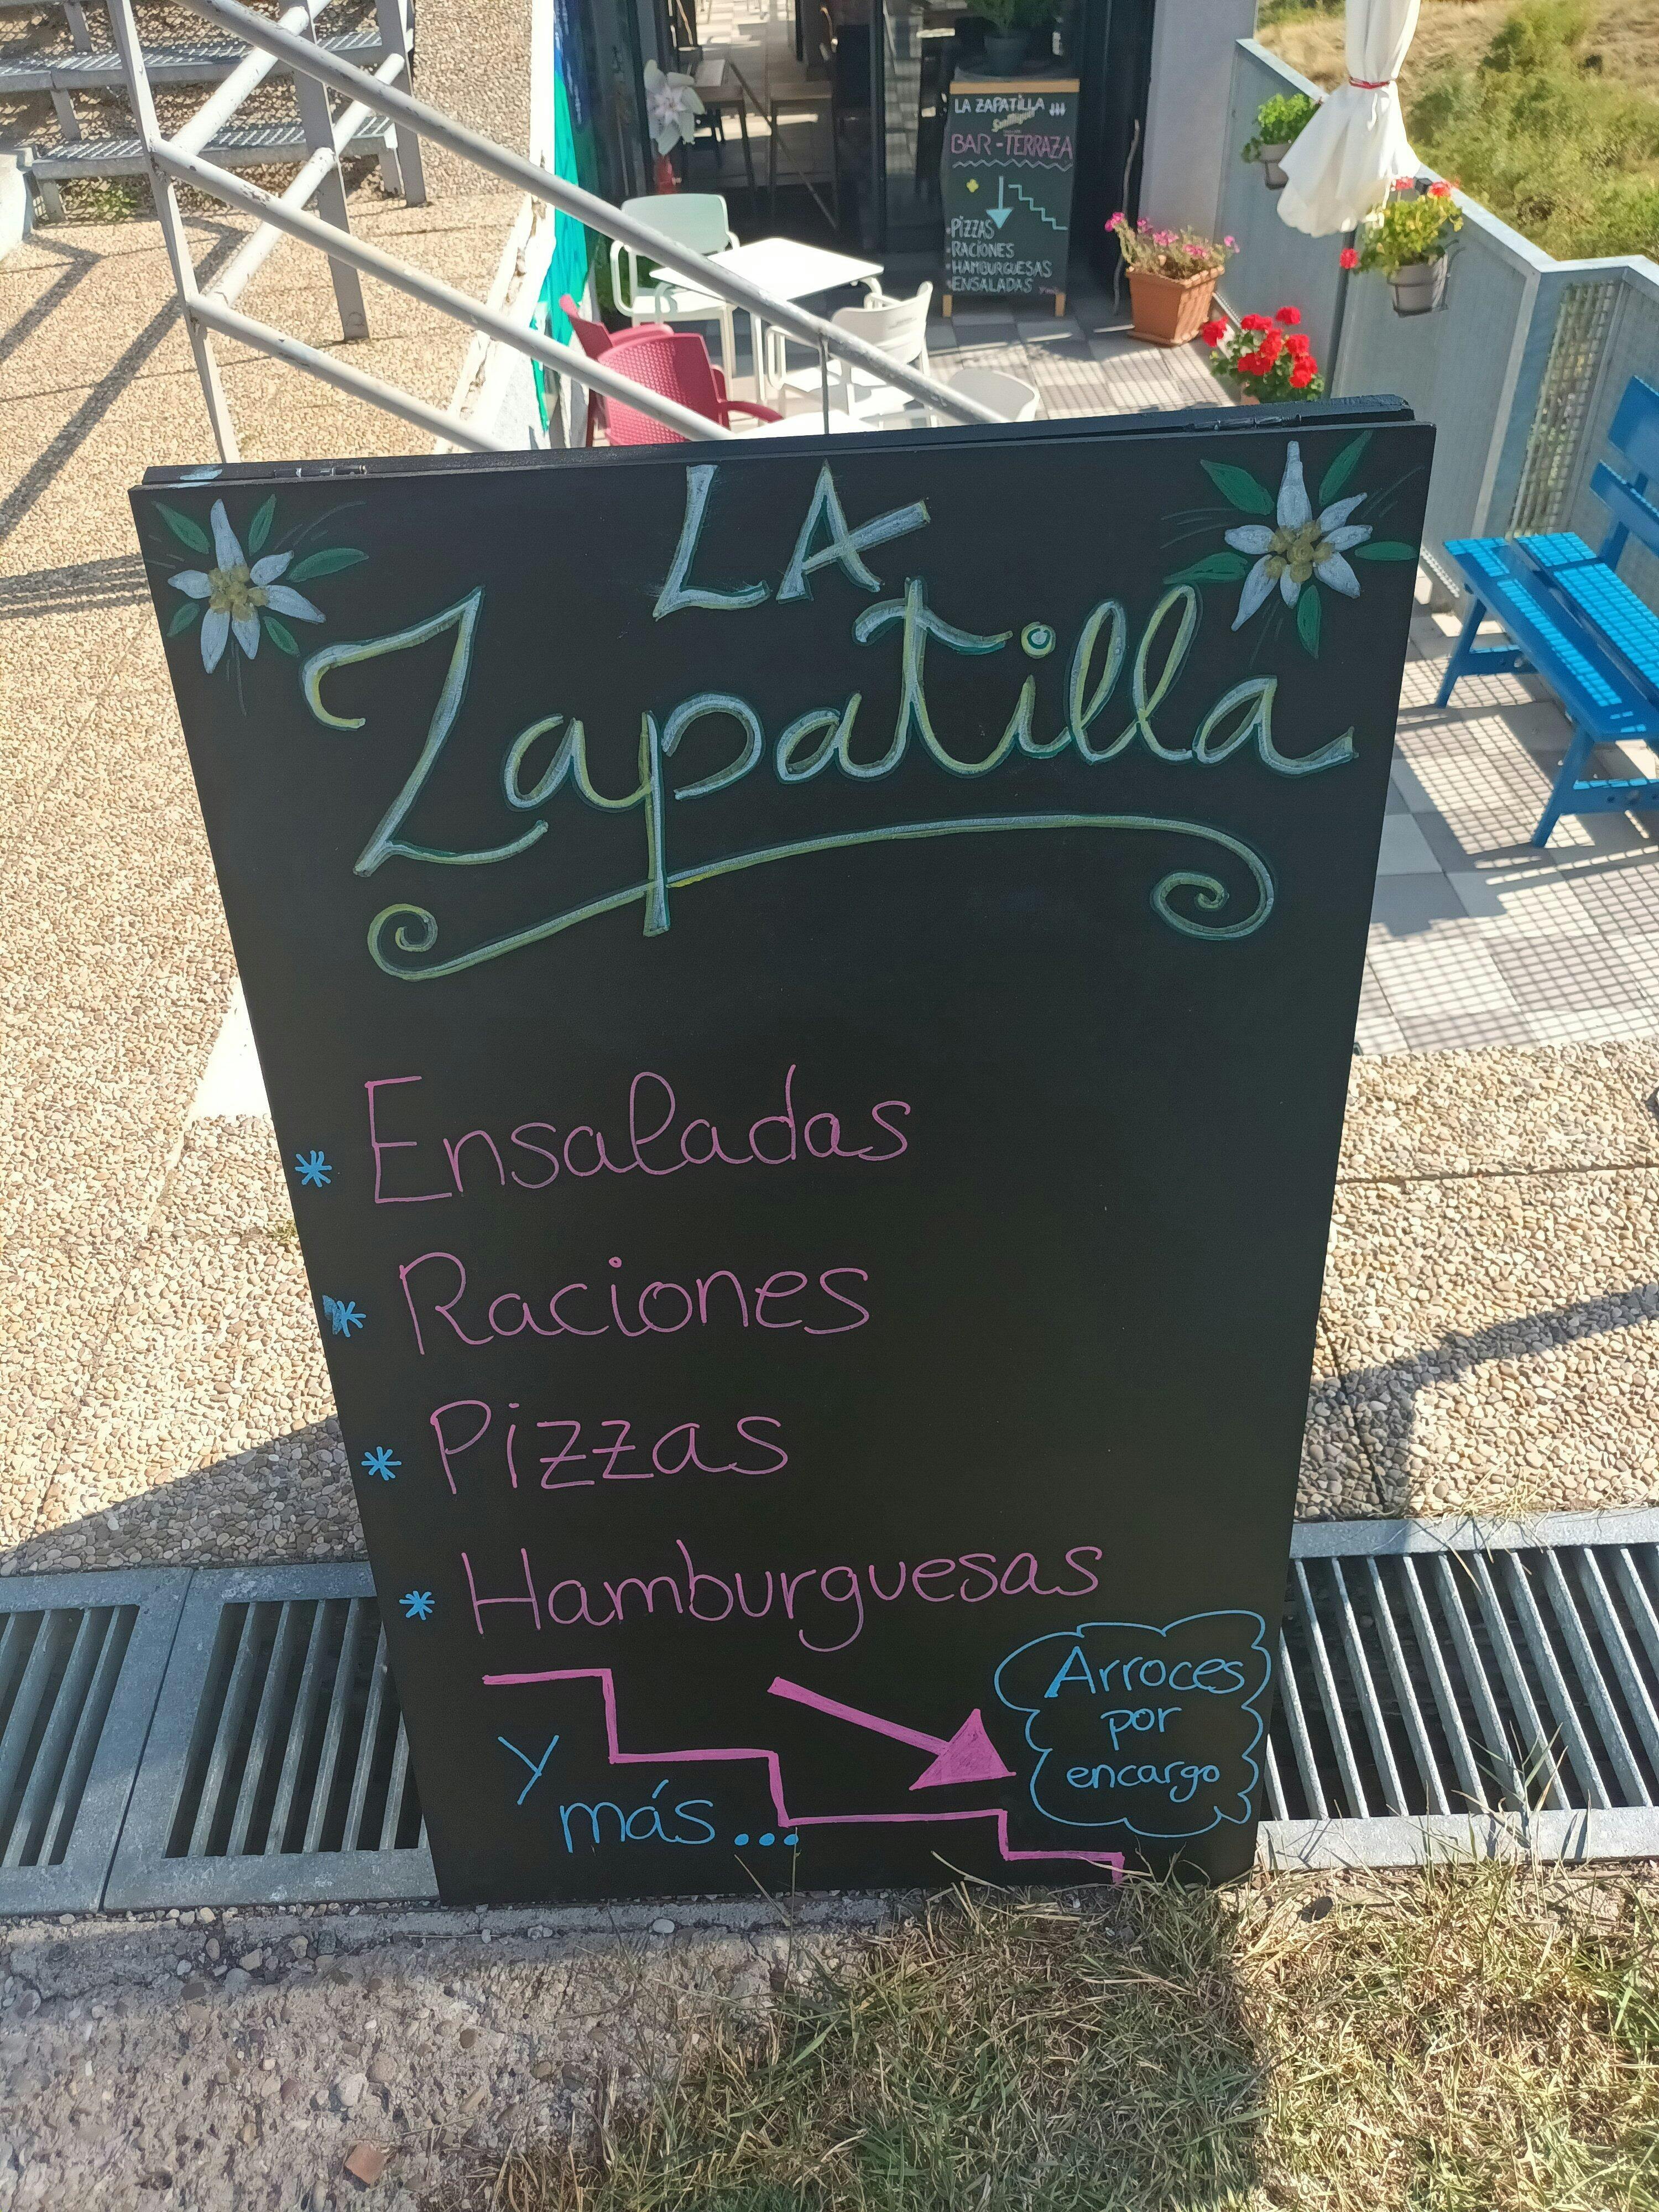 LA ZAPATILLA
San Miguel
BAR-TERRAZA
PIZZAS
RACIONES
HAMBURGUESAS
ENSALADAS
LA
Zapatilla
* Ensaladas
* Raciones
* Pizzas
* Hamburguesas
y
más...
Arroces
por
encargo